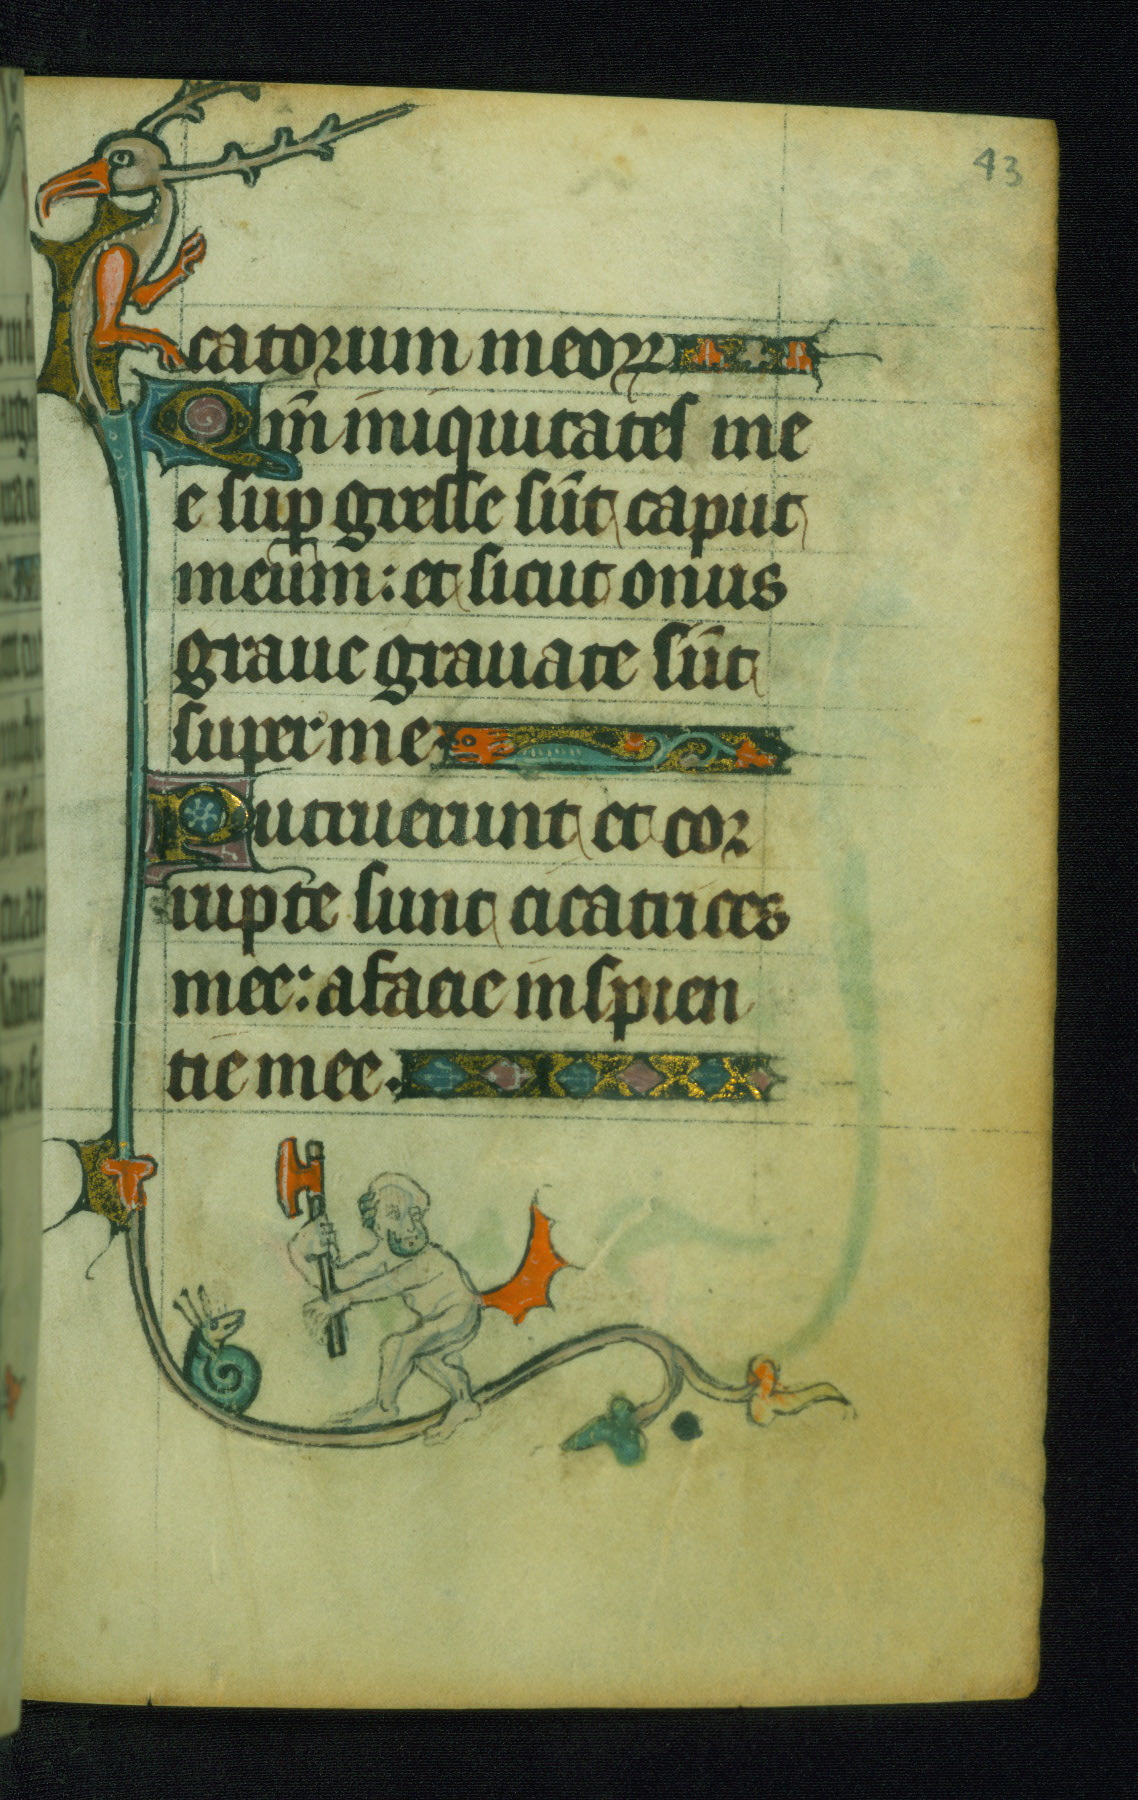 43
catorum meoꝝ
Qm̄ iniquitates me
e suꝑ gresse sūt caput
meūm: et sicut onus
graue grauate sūt
super me
Putruerunt et cor
rupte sunt cicatrices
mee: a facie inspien
tie mee.